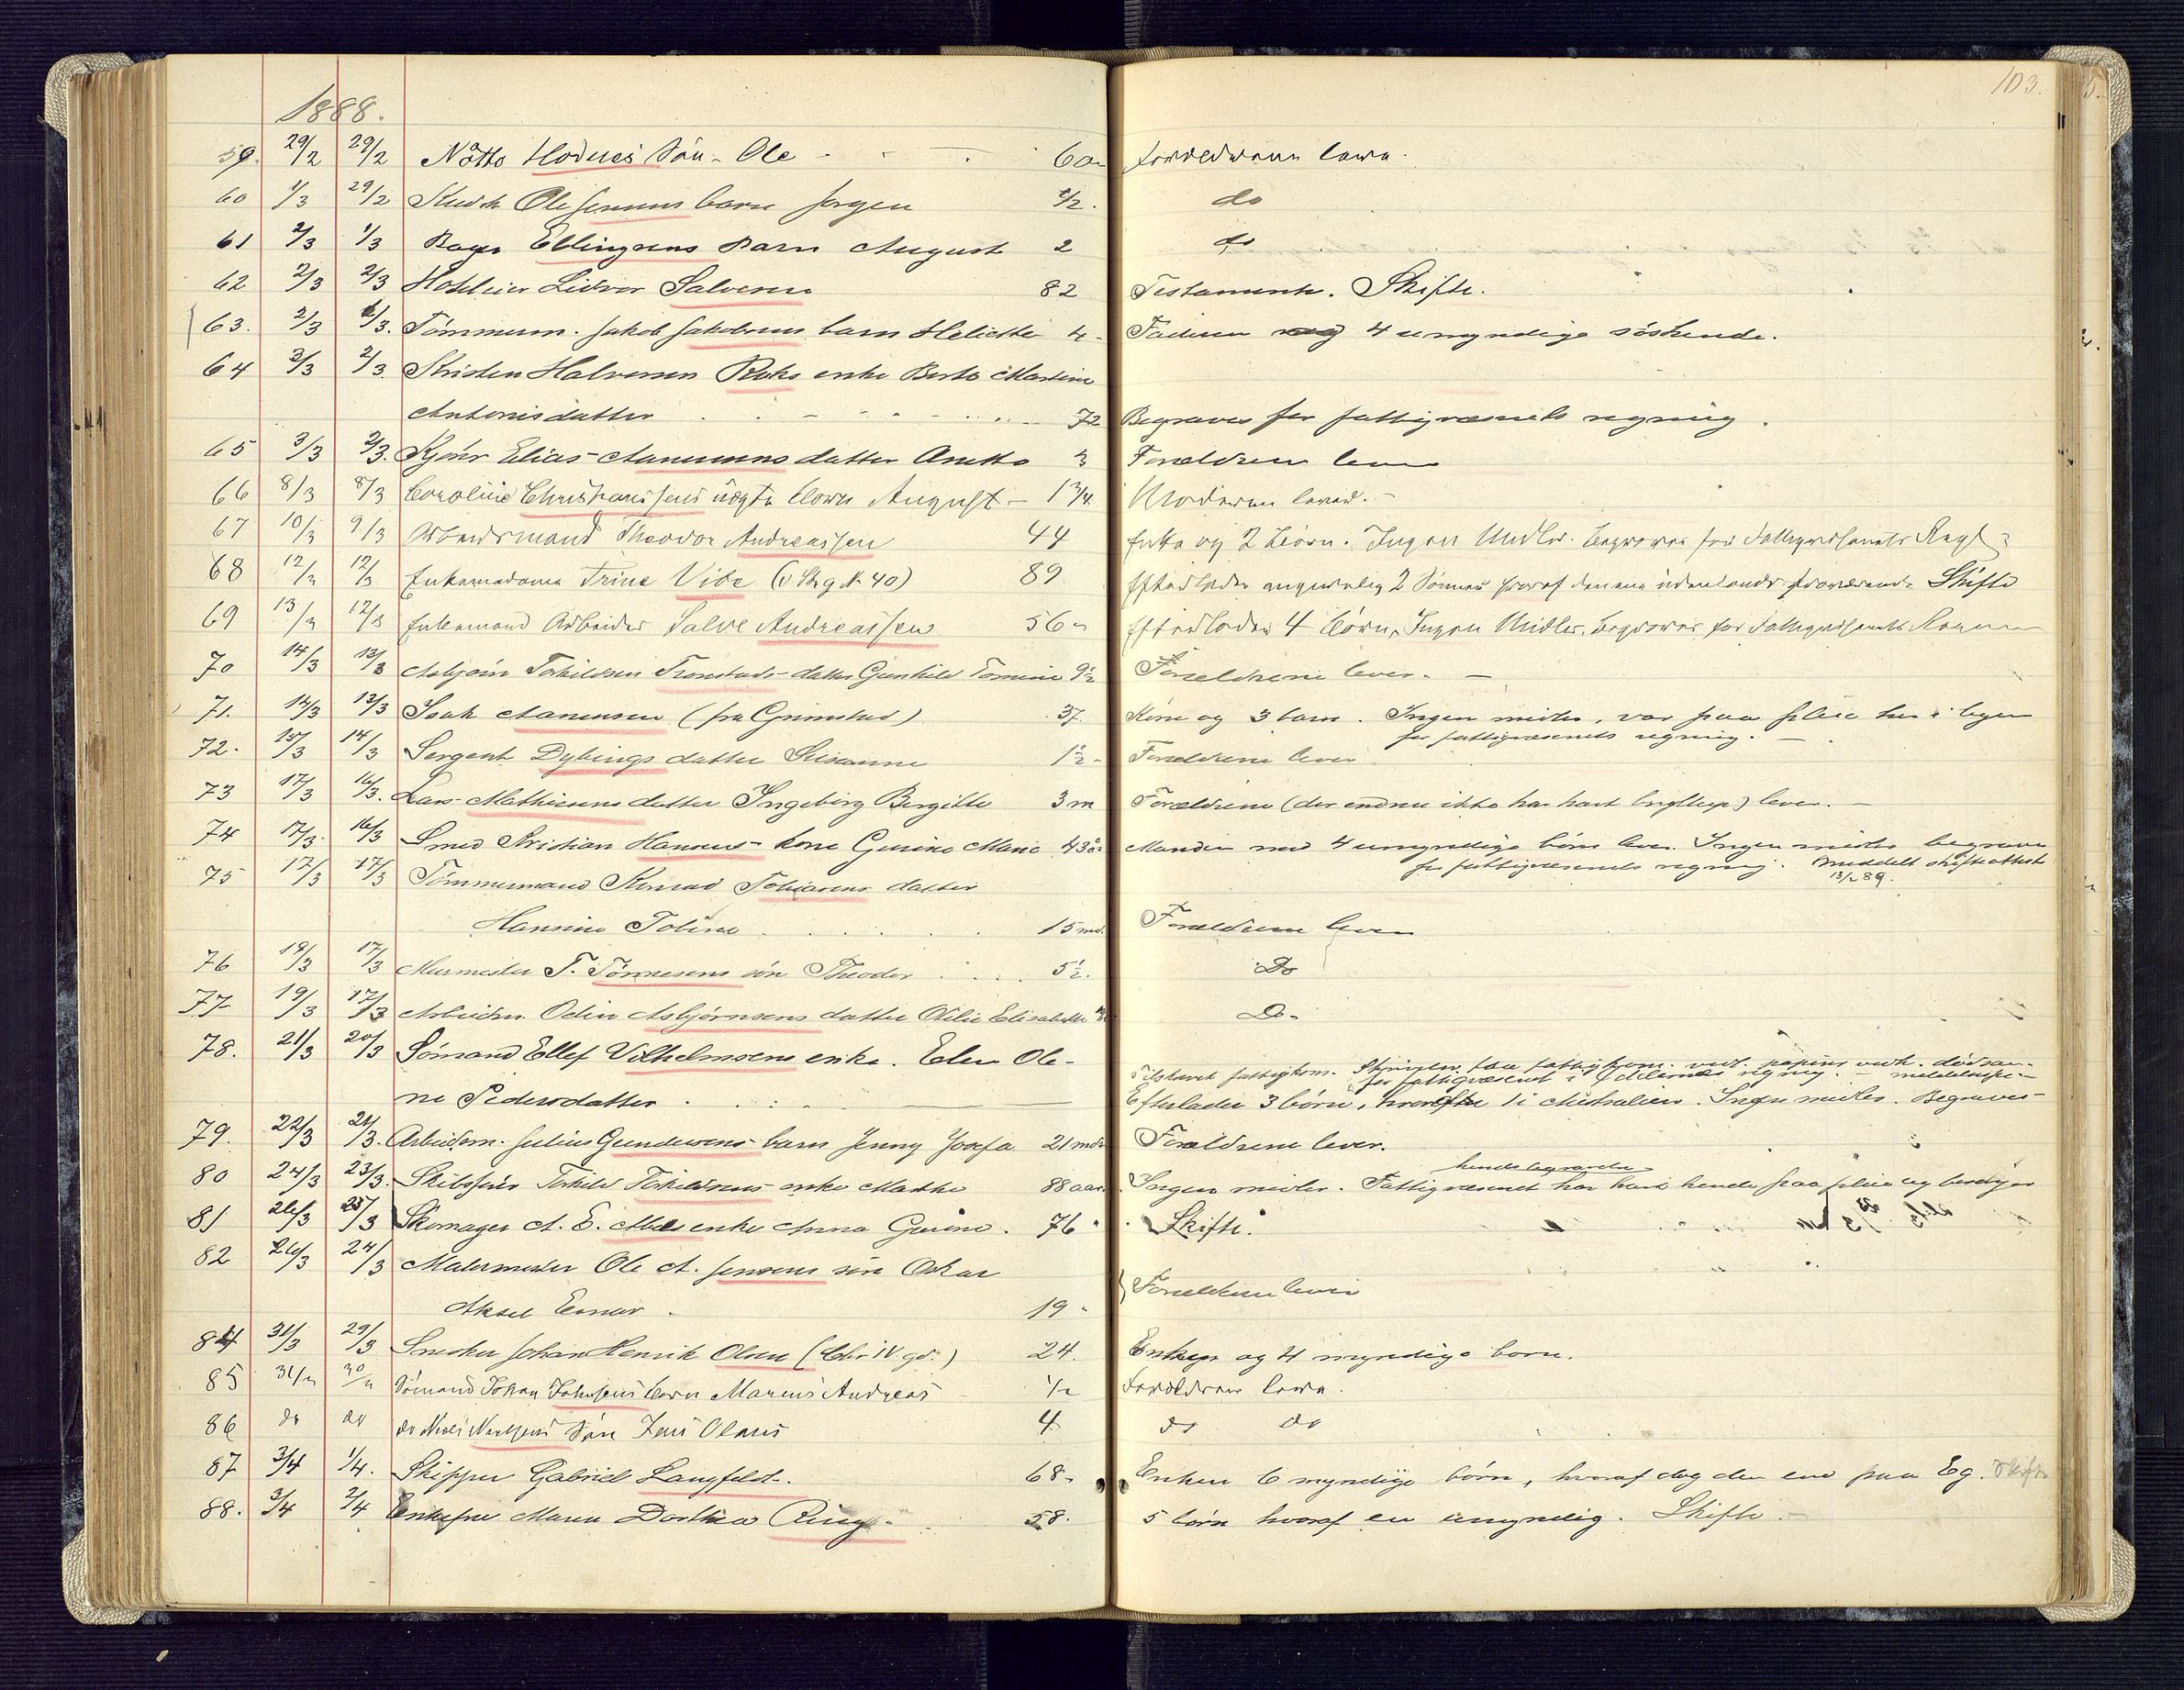 103.
1888.
59. 29/2 29/2 Nätto Hodnes Sön Ole 60 Forældrene leve.
60 1/3 29/2 Kusk Ole Jensens barn Jørgen 1/2. do
61 2/3 1/3 Bager Ellingsens Barn August 2 do
62 2/3 2/3 Salvesen 82 Testamente. Skifte.
63. 2/3 2/3. Tömmerm. Jakob Jakobsens barn 4 Faderen og 4 umyndige söskende.
64 3/3 2/3 Kristen Halvorsen Roks enke Berte Martine
Antonisdatter 72 Begraves for fattigvæsenets regning.
65 3/3 2/3. Kjönr Elias Aanensens datter Anette 3 Forældrene leve
66 8/3 8/3 Caroline Christiansens uægte barn August 1 3/4 Moderen lever.
67 10/3 9/3 Arbeidsmand Theodor Andreassen 44 Enke og 2 Börn. Ingen Midler. Begraves for Fattigvæsenets Regn
68 12/3 12/3 Enkemadame Trine Vibe (v Stg N 40) 89 Efterlader angivelig 2 Sönner hvoraf den ene udenlands fraværende. Skifte
69 13/3 12/3 Enkemand Arbeider Salve Andreassen 56 Efterlader 4 börn, Ingen Midler, begraves for Fattigvæsenets Regn
70 14/3 13/3 Asbjörn Torkildsen Tronstads datter Gunhild Tomine 9 1/2 Forældrene lever.
71. 14/3 13/3 Isak Aanensen (fra Grimstad) 37 Kone og 3 barn. Ingen midler, var paa pleie her i byen
for fattigvæsenets regning.
72. 15/3 14/3 Sergent Dybings datter Susanne 1 1/2 Forældrene lever
73 17/3 16/3. Lars Mathisens datter Ingeborg Birgitte 3 m Forældrene (der endnu ikke har havt bryllup) lever.
74 17/3 16/3 Smed Kristian Hansens kone Gurine Marie 43 Manden med 4 umyndige börn lever. Ingen midler begraves
for fattigvæsenets regning. Meddelt skifteattest
13/2 89.
75 17/3 17/3 Tömmermand Konrad Tobiasens datter
Hansine Toline 15 md. Forældrene lever
76 19/3 17/3 Murmester T. Tönnesens sön Theodor 5 1/2. Do
77 19/3 17/3 Arbeider Odin Asbjörnsens datter Otilie Elisabeth Do
78. 21/3 20/3 Sömand Ellef Vilhelmsens enke. Elen Ole-
Tilskrevet fattigkom.
for fattigvæsenet i regning.
ne Pedersdatter Efterlader 3 börn, hvoraf 1 i Australien. Ingen midler. Begraves
79. 22/3 21/3. Arbeidsm. Julius Gundersens barn Jenny Josefa 21 mdr Forældrene lever.
hendes begravelse
80 24/3 23/3. Skibsförer Torkild Torkildsens enke Marthe 88 aar. Ingen midler. Fattigvæsenet har havt hende paa pleie og besörger
81 26/3 25/3 Skomager A. E. enke Anna Gurine. 76 Skifte.
82 26/3 24/3 Malermester Ole A. Jensens sön Oskar
Aksel Einar 19 Forældrene lever
84 31/3 29/3 Snedker Johan Henrik Olsen (Chr IV gd.) 24. Enken og 4 myndige born.
85 31/3 30/3 Sömand Johan Johnsens barn Marius Andreas 1/2 Forældrene leve.
86 do do do Niels Nielsens Sön Jens Olaus 4 do do
87 3/4 1/4. Skipper Gabriel Langfeldt. 68 Enken 6 myndige börn, hvoraf dog den ene paa Eg. Skifte
88. 3/4 2/4 Enkefru Maren Dorthea Ring 58. 5 börn hvoraf en umyndig. Skifte.